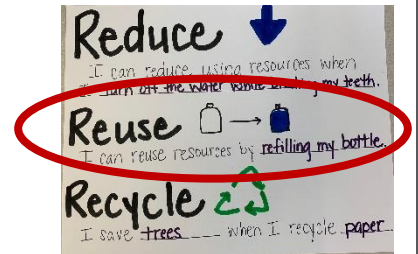 Reduce
I can reduce using resources when
I turn off the water while brushing my teeth.
Reuse
I can reuse resources by refilling my bottle.
Recycle
I save trees when I recycle paper.